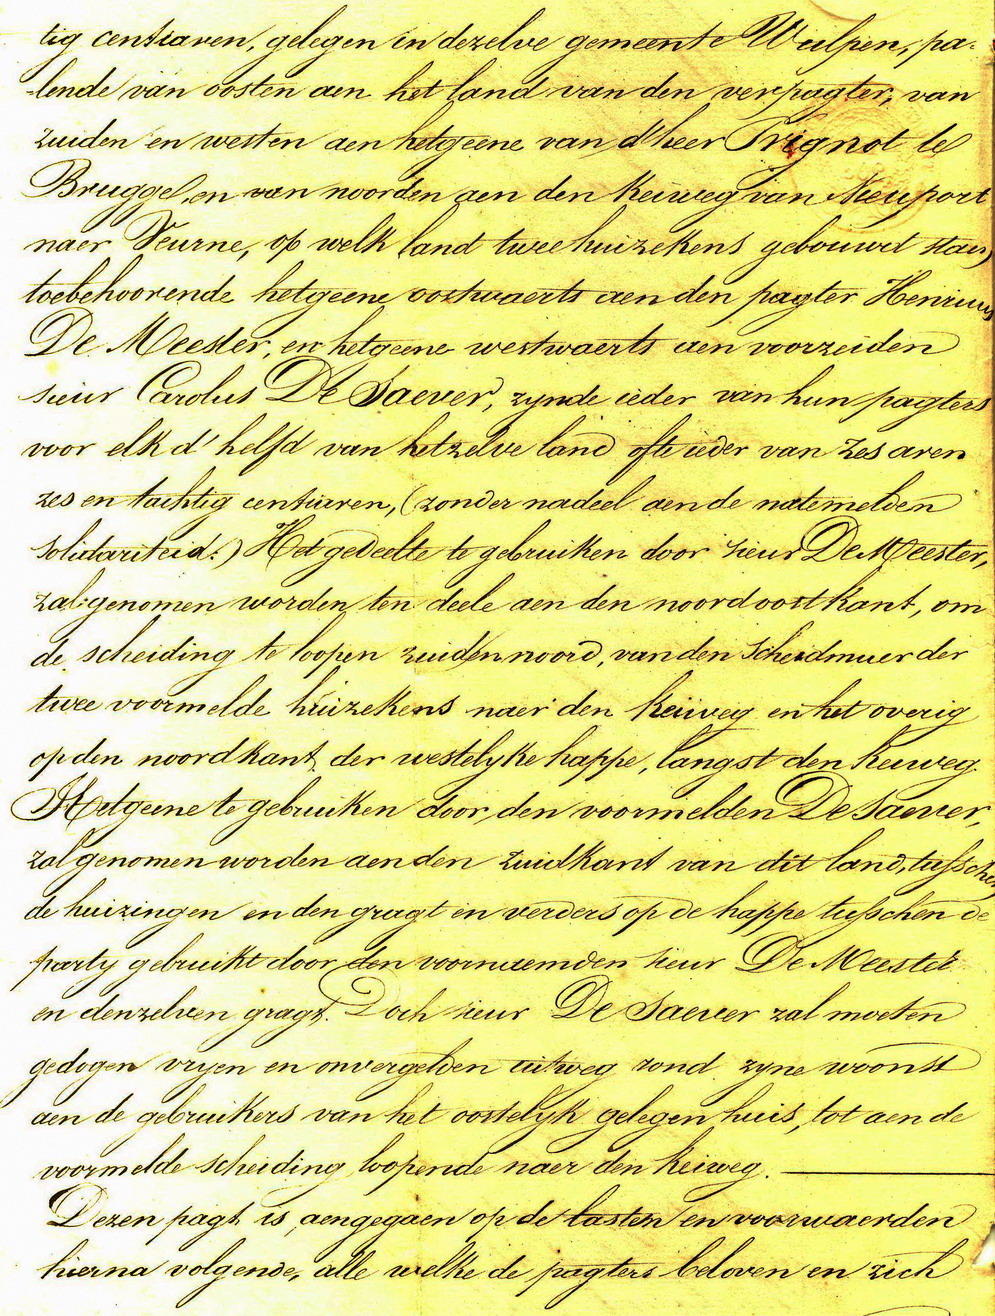 tig centiaren, gelegen in dezelve gemeente Wulpen, pa-
-lende van oosten aen het land van den verpagter, van
zuiden en westen aen hetgeene van d'heer Trignot te
Brugge, en van noorden aen den keiweg van Nieuport
naer Veurne, op welk land twee huizekens gebouwd staen
toebehoorende hetgeene oostwaerts aen den pagter Henricus
De Meester, en hetgeene westwaerts aen voorzeiden
sieur Carolus De Saever, zynde ieder van hun pagters
voor elk d'helfd van hetzelve land ofte ieder van zes aren
zes en tachtig centiaren, (zonder nadeel aen de natemelden
solidariteid.) Het gedeelte te gebruiken door sieur De Meester,
zal genomen worden ten deele aen den noordoostkant, om
de scheiding te loopen zuiden noord, van den Scheidmuer der
twee voormelde huizekens naer den keiweg en het overig
op den noordkant der westelyke happe, langst den keiweg.
Hetgeene te gebruiken door den voormelden De Saever,
zal genomen worden aen den zuidkant van dit land, tusschen
de huizingen en den gragt en verders op de happe tusschen de
party gebruikt door den voornaemden sieur De Meester
en denzelven gragt. Doch sieur De Saever zal moeten
gedogen vryen en onvergelden uitweg rond zyne woonst
aen de gebruikers van het oostelyk gelegen huis, tot aen de
voormelde scheiding loopende naer den keiweg.
Dezen pagt is aengegaen op de lasten en voorwaerden
hierna volgende, alle welke de pagters beloven en zich